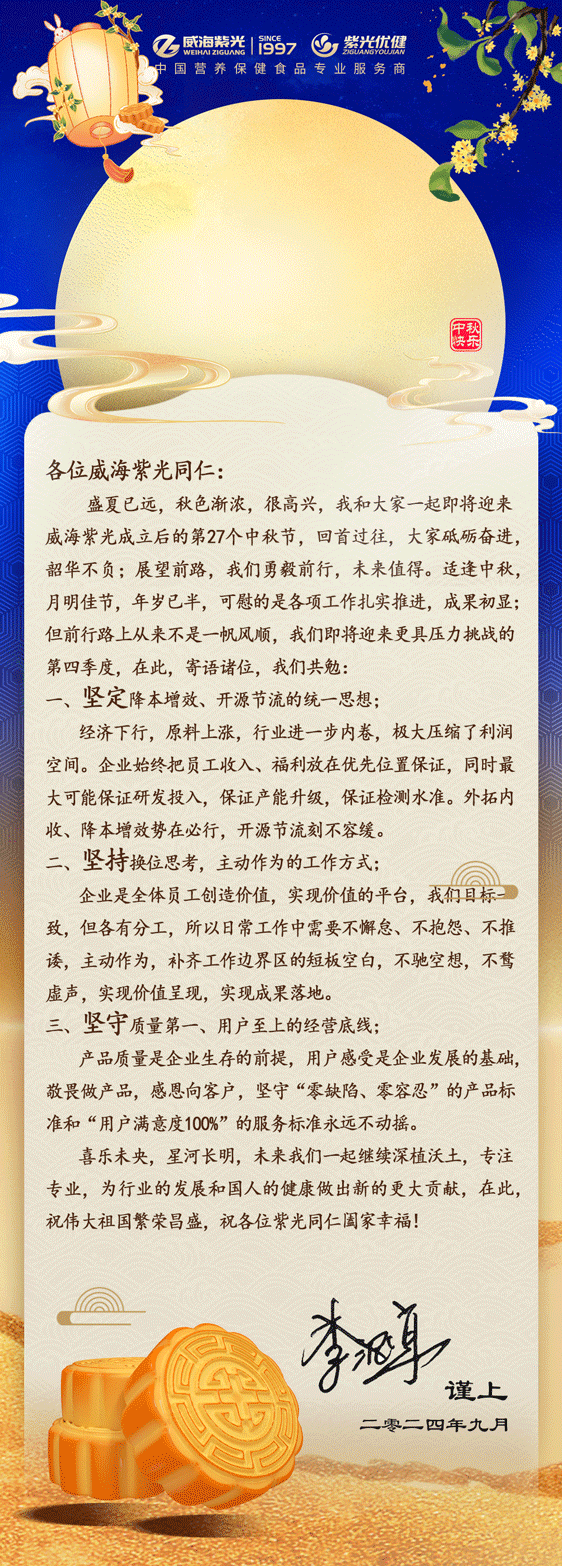 威海紫光
WEIHAI ZIGUANG
SINCE
1997
紫光优健
ZIGUANGYOUJIAN
中国营养保健食品专业服务商
中秋
快乐
各位威海紫光同仁：
盛夏已远，秋色渐浓，很高兴，我和大家一起即将迎来
威海紫光成立后的第27个中秋节，回首过往，大家砥砺奋进，
韶华不负；展望前路，我们勇毅前行，未来值得。适逢中秋，
月明佳节，年岁已半，可慰的是各项工作扎实推进，成果初显；
但前行路上从来不是一帆风顺，我们即将迎来更具压力挑战的
第四季度，在此，寄语诸位，我们共勉：
一、坚定降本增效、开源节流的统一思想；
经济下行，原料上涨，行业进一步内卷，极大压缩了利润
空间。企业始终把员工收入、福利放在优先位置保证，同时最
大可能保证研发投入，保证产能升级，保证检测水准。外拓内
收、降本增效势在必行，开源节流刻不容缓。
二、坚持换位思考，主动作为的工作方式；
企业是全体员工创造价值，实现价值的平台，我们目标一
致，但各有分工，所以日常工作中需要不懈怠、不抱怨、不推
诿，主动作为，补齐工作边界区的短板空白，不驰空想，不骛
虚声，实现价值呈现，实现成果落地。
三、坚守质量第一、用户至上的经营底线；
产品质量是企业生存的前提，用户感受是企业发展的基础，
敬畏做产品，感恩向客户，坚守“零缺陷、零容忍”的产品标
准和“用户满意度100%”的服务标准永远不动摇。
喜乐未央，星河长明，未来我们一起继续深植沃土，专注
专业，为行业的发展和国人的健康做出新的更大贡献，在此，
祝伟大祖国繁荣昌盛，祝各位紫光同仁阖家幸福！
谨上
二零二四年九月